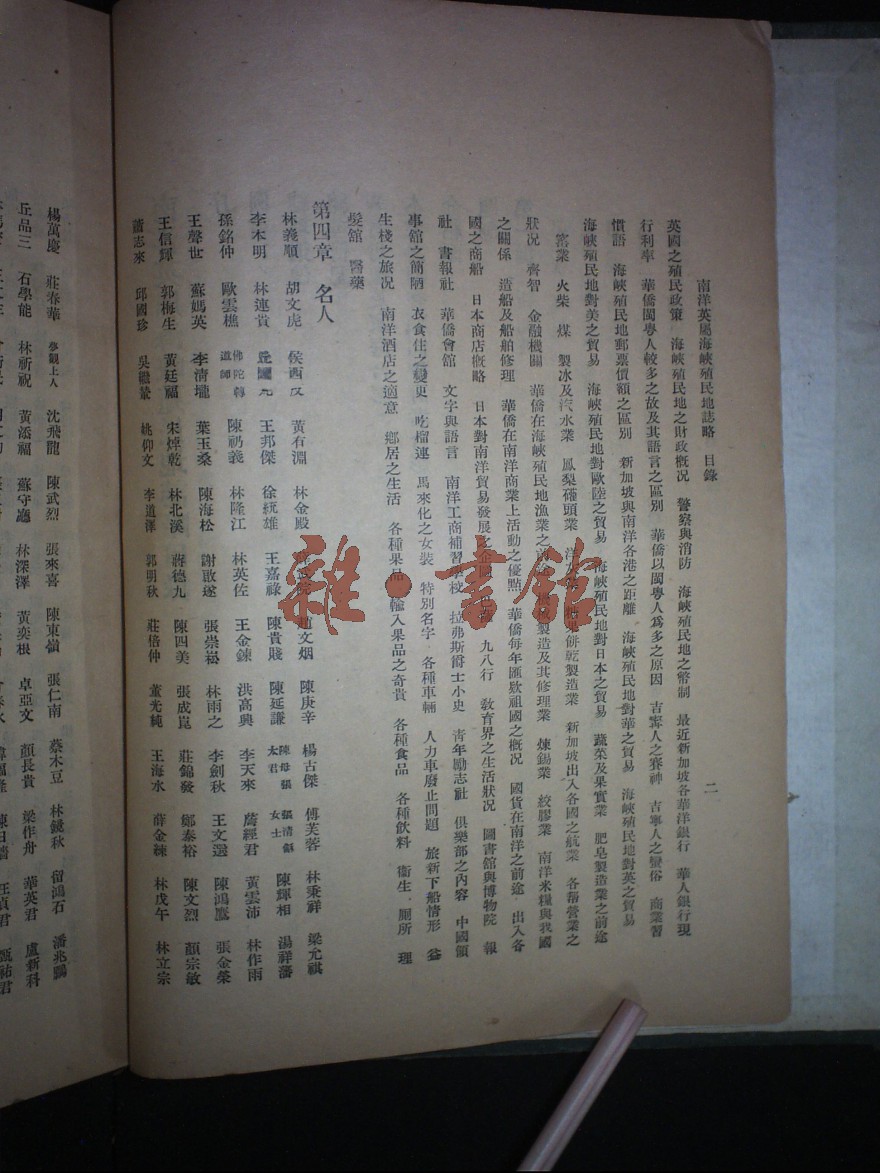 南洋英屬海峽殖民地誌略 目錄
二
英國之殖民政策 海峽殖民地之財政概况 警察與消防 海峽殖民地之幣制 最近新加坡各華洋銀行 華人銀行現
行利率 華僑閩粵人較多之故及其語言之區别 華僑以閩粵人爲多之原因 吉寧人之賽神 吉寧人之蠻俗 商業習
慣語 海峽殖民地郵票價額之區别 新加坡與南洋各港之距離 海峽殖民地對華之貿易 海峽殖民地對英之貿易
海峽殖民地對美之貿易 海峽殖民地對歐陸之貿易 海峽殖民地對日本之貿易 蔬菜及果實業 肥皂製造業之前途
窰業 火柴 煤 製冰及汽水業 鳳梨罐頭業 餅乾製造業 新加坡出入各國之航業 各帮營業之
狀况 齊智 金融機關 華僑在海峽殖民地漁業之 製造及其修理業 煉錫業 絞膠業 南洋米糧與我國
之關係 造船及船舶修理 華僑在南洋商業上活動之優點 華僑每年匯欵祖國之概况 國貨在南洋之前途 出入各
國之商船 日本商店概略 日本對南洋貿易發展之企圖 九八行 敎育界之生活狀况 圖書館與博物院 報
社 書報社 華僑會館 文字與語言 南洋工商補習學校 拉弗斯爵士小史 青年勵志社 俱樂部之內容 中國領
事館之簡陋 衣食住之變更 吃榴連 馬來化之女裝 特别名字 各種車輛 人力車廢止問題 旅新下船情形 益
生棧之旅况 南洋酒店之適意 鄉居之生活 各種果品 輸入果品之奇貴 各種食品 各種飲料 衞生 厠所 理
髮館 醫藥
第四章 名人
林義順 胡文虎 侯西反 黃有淵 林金殿 趙文烟 陳庚辛 楊古傑 傅芙蓉 林秉祥 梁允祺
李木明 林連貴 王邦傑 徐統雄 王嘉祿 陳貴賤 陳延謙 陳母張太君 女士 陳輝相 湯祥藩
孫銘仲 歐雲樵 佛陀尊道師 陳礽義 林隆江 林英佐 王金鍊 洪高興 李天來 蔣經君 黃雲沛 林作雨
王聲世 蘇媽英 李清壠 葉玉桑 陳海松 謝敢遂 張崇崧 林雨之 李劍秋 王文選 陳鴻鷹 張金榮
王信輝 郭梅生 黃廷福 宋焯乾 林北溪 蔣德九 陳四美 張成崑 莊錦發 鄭泰裕 陳文烈 顏宗敏
蕭志來 邱國珍 吳繼蓁 姚仰文 李道澤 郭明秋 莊棓仲 董光純 王海水 薛金棟 林戊午 林立宗
楊萬慶 莊春華 夢觀上人 沈飛龍 陳武烈 張來喜 陳東嶺 張仁南 蔡木豆 林鏡秋 留鴻石 潘兆鵬
丘品三 石學能 林祈祝 黃添福 蘇守廳 林深澤 黃奕根 卓亞文 顏長貴 梁作舟 華英君 盧新科
雜·書館